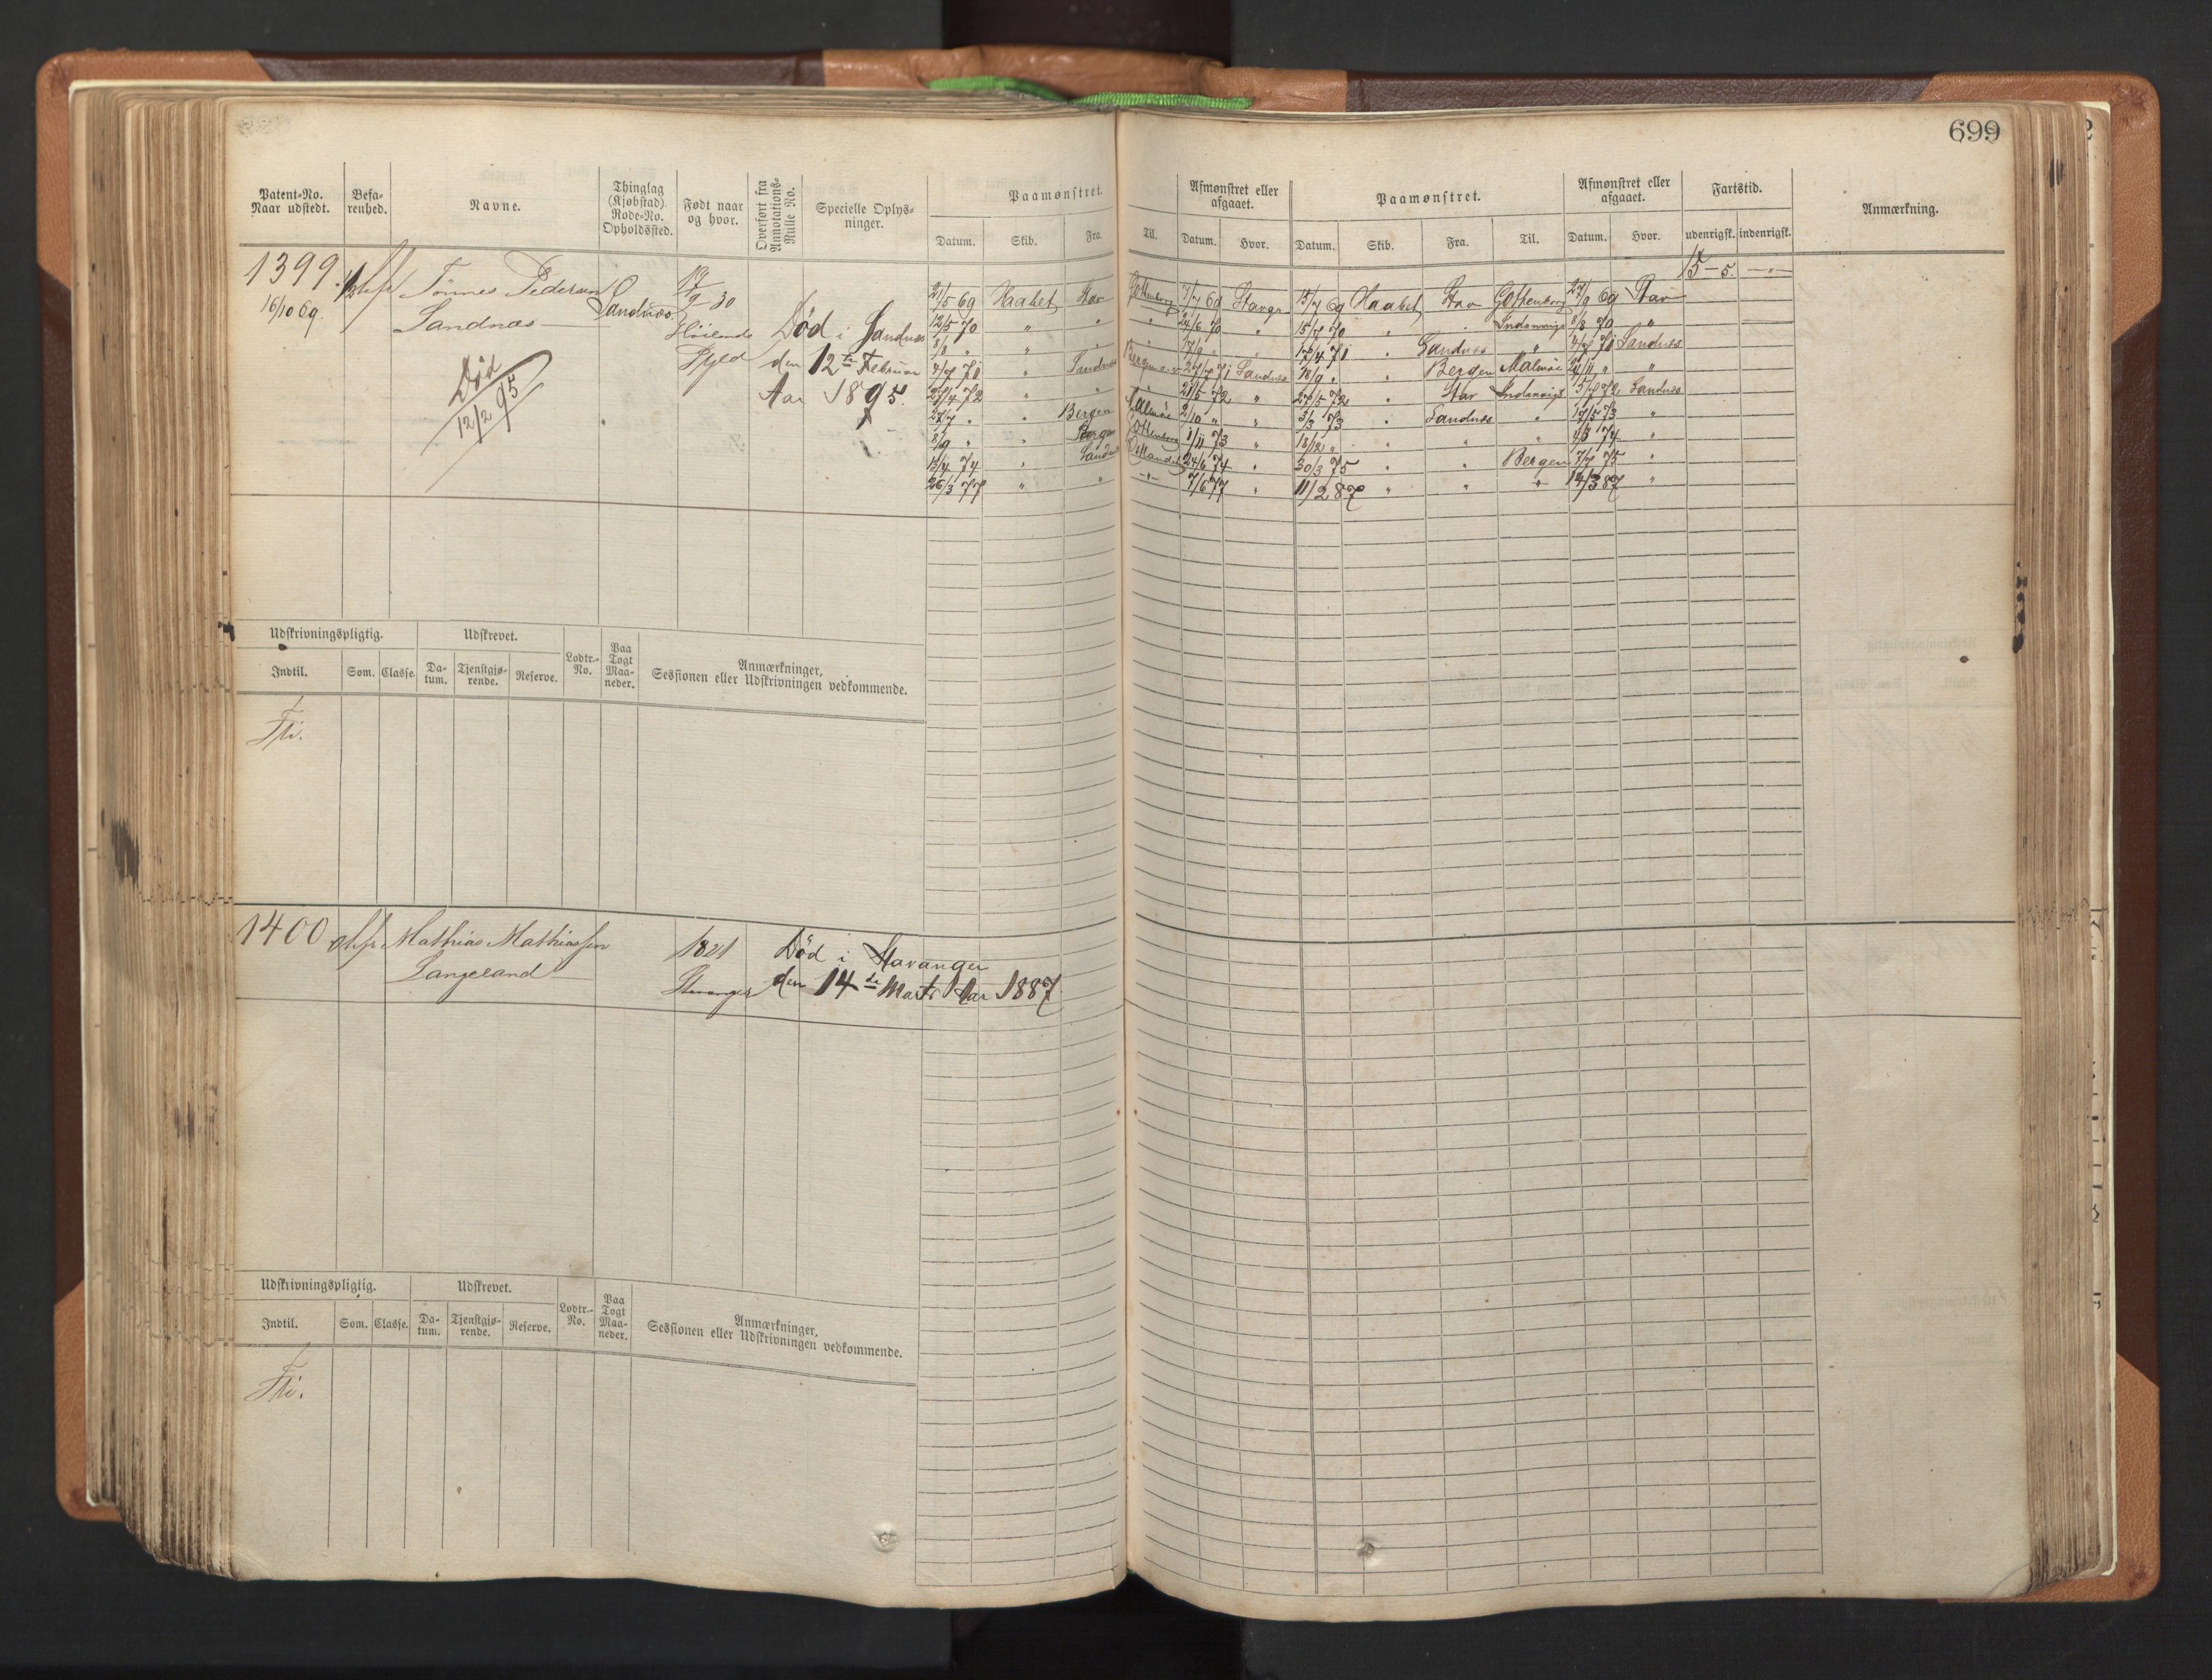 699
Patent-No. Naar udstedt.
Befa-renhed.
Navne.
Thinglag (Kjøbstad) Rode-No. Opholdssted.
Født naar og hvor.
Overført fra Annotations-Rulle No.
Specielle Oplys-ninger.
Paamønstret.
Datum. Skib. Fra. Til.
Afmønstret eller afgaaet.
Datum. Hvor.
Paamønstret.
Datum. Skib. Fra. Til.
Afmønstret eller afgaaet.
Datum. Hvor.
Fartstid.
udenrigsk. indenrigsk.
Anmærkning.
1399
16/10 69.
Tönnes Pedersen
Sandnæs
Død
12/2 95
Sandnæs
30
Død i Sandnæs
den 12te Februar
Aar 1895.
15-5.
21/5 69 Haabet Stav Gothenborg 7/7 69 Stavgr 15/7 69 Haabet Stav Gothenborg 27/9 69 Stav
12/5 70 " " " 24/6 70 " 15/7 70 " " Indenrigs 8/8 70 "
8/8 " " " " 17/4 71 . Sandnæs " 4/7 71 Sandnæs
4/7 71 " Sandnæs Sandnæs 18/9 " . Bergen Malmöe "
27/4 72 " " 21/5 72 " 27/5 72 . Stav Indenrigs 5/7 72 Sandnæs
27/7 " " Bergen Malmöe 2/10 " " 3/3 73 . Sandnæs " 17/5 73 "
8/9 " " Bergen Gothenborg 1/11 73 " 18/12 " . " " 74 "
13/4 74 . Sandnæs 24/6 74 . 30/3 75 . " Bergen 7/7 75 "
26/3 77 " " 7/6 77 " 11/2 87 " " " 14/3 87 "
Udskrivningspligtig.
Indtil. Som. Classe.
Udskrevet.
Da-tum. Tjenstgjø-rende. Reserve.
Lodtr.-No.
Paa Togt Maa-neder.
Anmærkninger,
Sessionen eller Udskrivningen vedkommende.
Fri.
1400
Mathias Mathiassen
Langeland
1821
Stavanger
Død i Stavanger
den 14de Marts Aar 1887
Udskrivningspligtig.
Indtil. Som. Classe.
Udskrevet.
Da-tum. Tjenstgjø-rende. Reserve.
Lodtr.-No.
Paa Togt Maa-neder.
Anmærkninger,
Sessionen eller Udskrivningen vedkommende.
Fri.